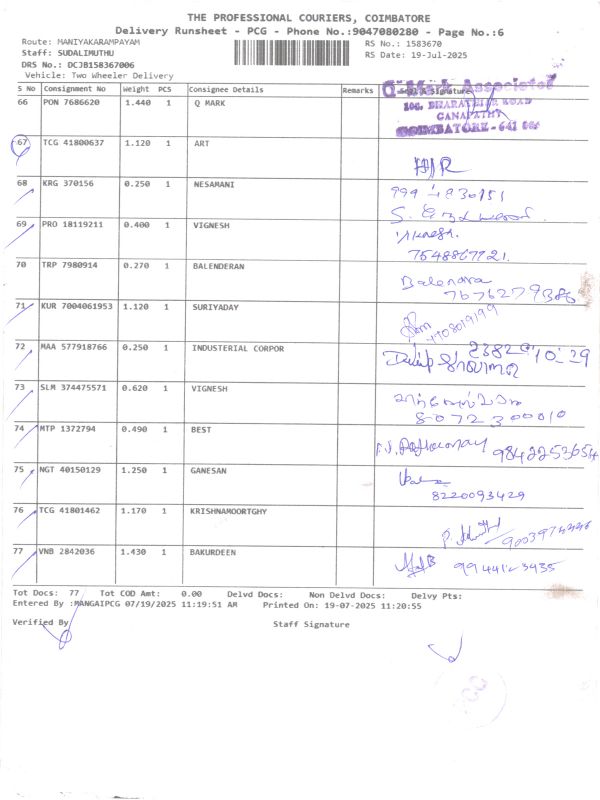 THE PROFESSIONAL COURIERS, COIMBATORE
Delivery Runsheet - PCG - Phone No.:9047080280 - Page No.:6
Route: MANIYAKARAMPAYAM RS No.: 1583670
Staff: SUDALIMUTHU RS Date: 19-Jul-2025
DRS No.: DCJB158367006
Vehicle: Two Wheeler Delivery
S No Consignment No Weight PCS Consignee Details Remarks Seal & Signature
Q-Mark Associates
BHARATHIAR ROAD
GANAPATHY
COIMBATORE - 641 006
66 PON 7686620 1.440 1 Q MARK
67 TCG 41800637 1.120 1 ART
68 KRG 370156 0.250 1 NESAMANI
69 PRO 18119211 0.400 1 VIGNESH
Vignesh.
7548867721.
70 TRP 7980914 0.270 1 BALENDERAN
Balendra
7676279386
71 KUR 7004061953 1.120 1 SURIYADAY
72 MAA 577918766 0.250 1 INDUSTERIAL CORPOR
73 SLM 374475571 0.620 1 VIGNESH
8072300010
74 MTP 1372794 0.490 1 BEST
9842253654
75 NGT 40150129 1.250 1 GANESAN
8220093429
76 TCG 41801462 1.170 1 KRISHNAMOORTGHY
77 VNB 2842036 1.430 1 BAKURDEEN
Tot Docs: 77 Tot COD Amt: 0.00 Delvd Docs: Non Delvd Docs: Delvy Pts:
Entered By :MANGAIPCG 07/19/2025 11:19:51 AM Printed On: 19-07-2025 11:20:55
Verified By Staff Signature